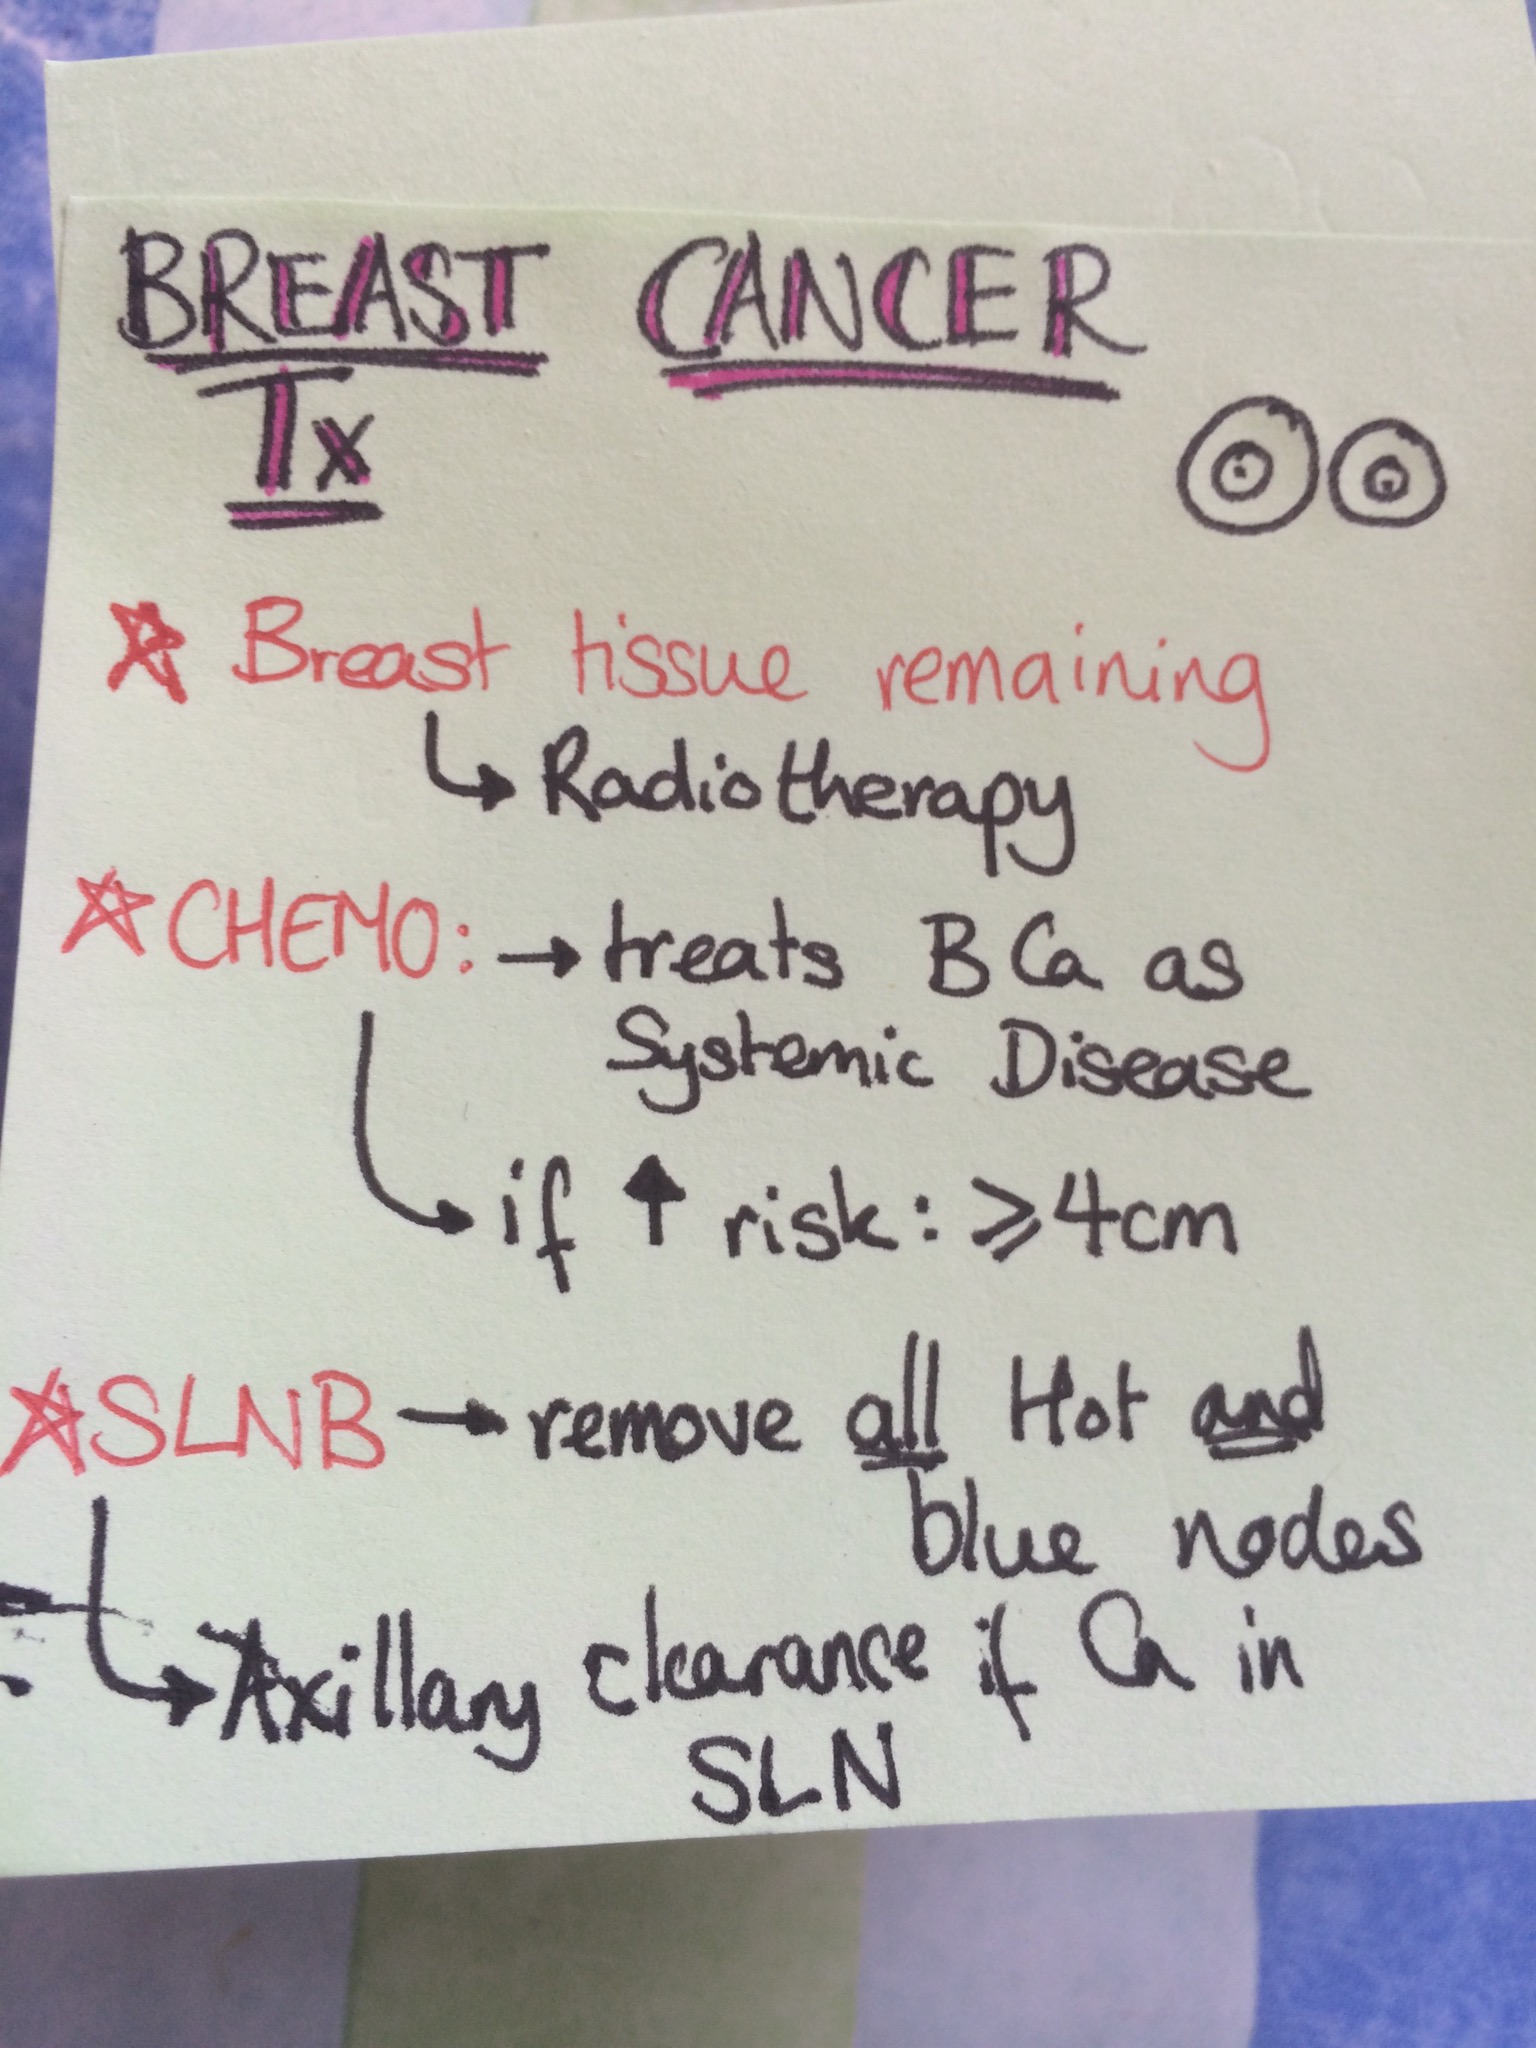 BREAST CANCER
Tx
☆ Breast tissue remaining
↳ Radiotherapy
☆ CHEMO: → treats BCa as
Systemic Disease
↳ if ↑ risk: ⩾4cm
☆ SLNB → remove all Hot and
blue nodes
↳ Axillary clearance if Ca in
SLN